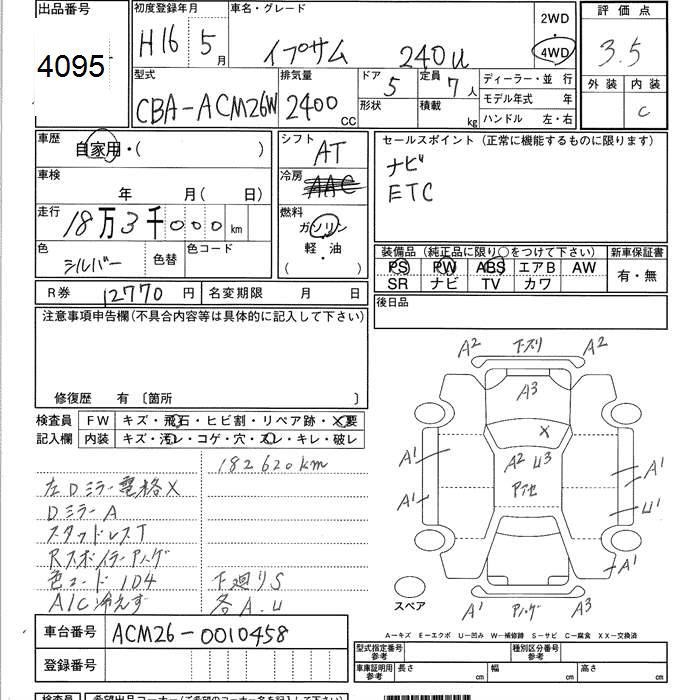 出品番号 初度登録年月 車名・グレード 2WD 評価点
4095 H16 5月 イプサム 240u 4WD 3.5
型式 排気量 ドア 定員 ディーラー・並行 外装 内装
CBA-ACM26W 2400CC 5 7人 モデル年式 年 C
形状 積載 kg ハンドル 左・右
車歴 自家用・( ) シフト AT セールスポイント(正常に機能するものに限ります)
車検 年 月( 日) 冷房 AAC ナビ
ETC
走行 18万3千000km 燃料 ガソリン
軽・油
( )
色 シルバー 色替 色コード
装備品(純正品に限り○をつけて下さい) 新車保証書
PS PW ABS エアB AW 有・無
SR ナビ TV カワ
R券 12770円 名変期限 月 日 後日品
注意事項申告欄(不具合内容等は具体的に記入して下さい)
修復歴 有〔箇所 〕
検査員 FW キズ・飛石・ヒビ割・リペア跡・X要
記入欄 内装 キズ・汚レ・コゲ・穴・スレ・キレ・破レ
182620km
左Dミラー電格X
DミラーA
スタッドレスT
Rスポイラーアハゲ
色コード 1D4 下廻りS
A/C冷えず 各A.U
A2 下スリ A2
A3
X
A2 U3
A1 A1
A1 U1
スペア A1 アハゲ A3
A-キズ E-エクボ U-凹み W-補修跡 S-サビ C-腐食 XX-交換済
車台番号 ACM26-0010458
登録番号
型式指定番号 参考 種別区分番号 参考
車庫証明用 参考 長さ cm 幅 cm 高さ cm
検査員 希望出品コーナー(ご希望のコーナー名を記入下さい)